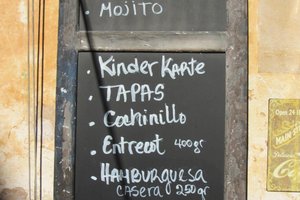 MOJITO
. KINDER KARTE
. TAPAS
. Cochinillo
. Entrecot 400gr
. HAMBURGUESA
CASERA 250gr
Open 24
MAIN